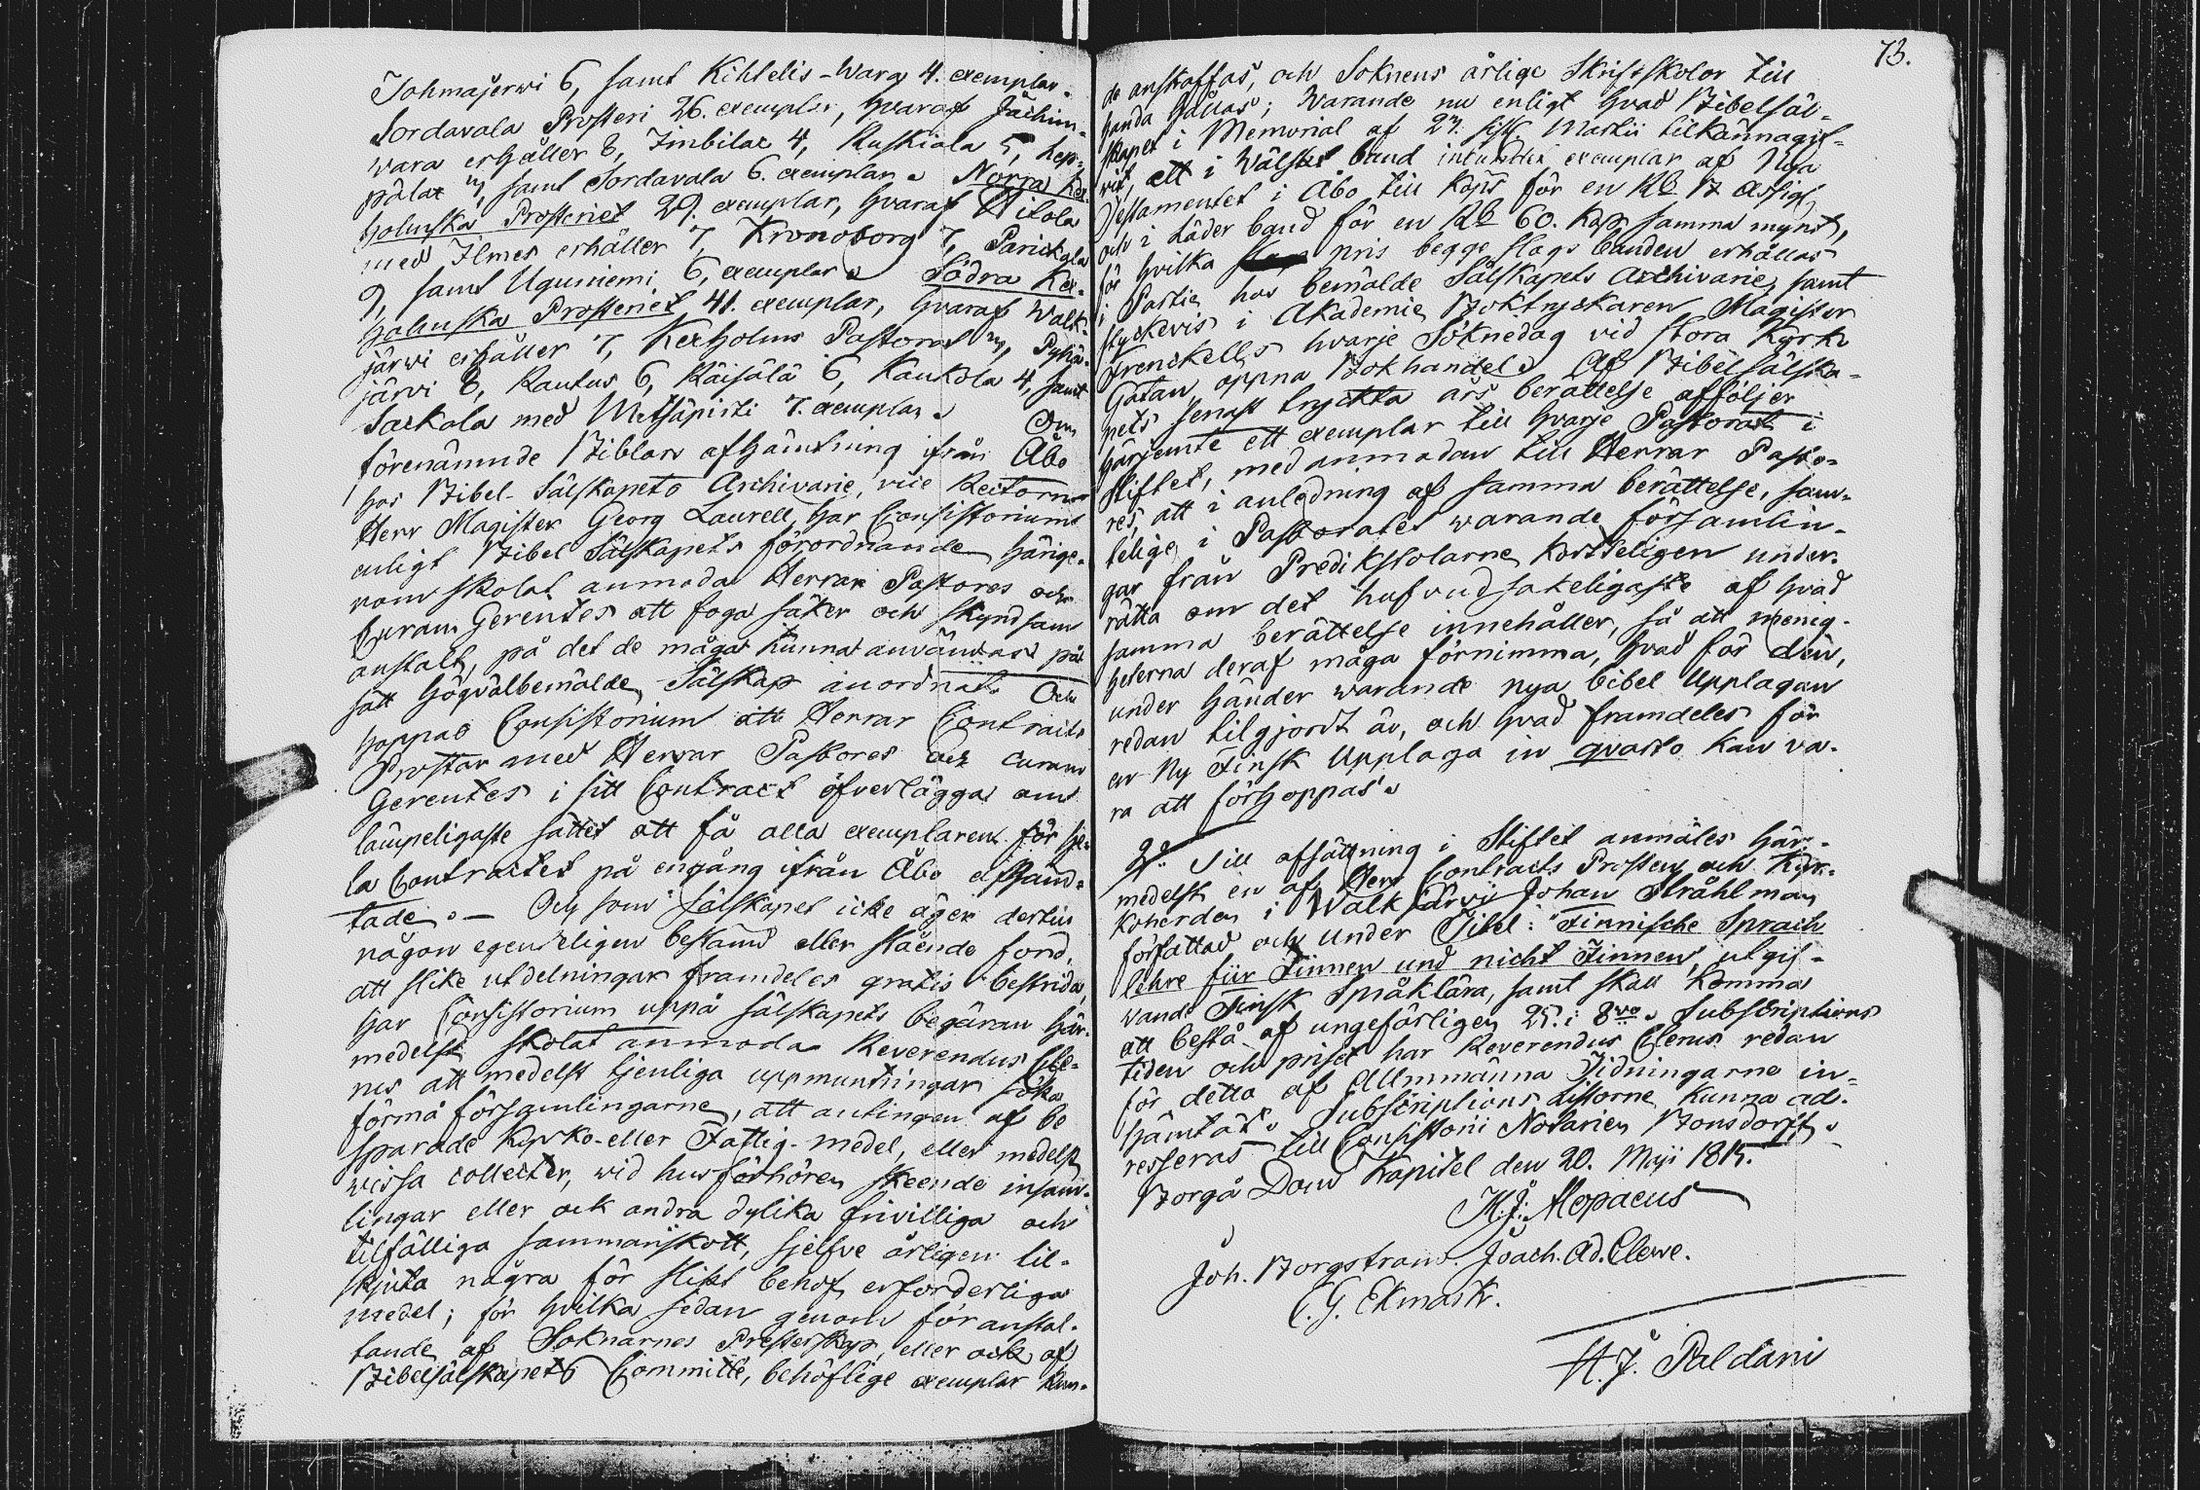 Tohmajerwi 6, samt Kihtelis-Wara 4. exemplar.
Sordavala Prosteri 26. exemplar, hvaraf Jächim-
vara erhåller 8, Imbilax 4, Ruskiala 5, Lep-
pälax 3, samt Sordavala 6. exemplar. Norra Kex-
holmska Prosteriet 29. exemplar, hvaraf Hitola
med Ilmes erhåller 7, Kronoborg 7, Parickala
9, samt Uguniemi 6, exemplar. Södra Kex-
holmska Prosteriet 41. exemplar, hvaraf Walk-
järwi erhåller 7, Kexholms Pastorat 3, Pyhä-
järvi 8, Rautus 6, Räisälä 6, Kaukola 4, samt
Sackola med Metsäpirti 7. exemplar. Om
förenämnde Biblars afhämtning ifrån Åbo
hos Bibel-Sälskapets Archivarie, vice Rectorn
Herr Magister Georg Laurell, har Consistorium
enligt Bibel Sälskapets förordnande härige-
nom skolat anmoda Herrar Pastores och
Curam Gerentes att foga säker och skyndsam
anstalt, på det de måga kunna användas på
sätt högvälbemälde Sälskap anordnat. Och
hoppas Consistorium att Herrar Contracts
Prostar med Herrar Pastores och curam
Gerentes i sitt Contract öfverlägga om
lämpeligaste sättet att få alla exemplaren för he-
la Contractet på engång ifrån Åbo afhäm-
tade. — Och som Sälskapet icke äger dertill
någon egenteligen bestämd eller stående fond,
att slike utdelningar framdeles gratis bestrida,
har Consistorium uppå sälskapets begäran här-
medelst skolat anmoda Reverendus Cle-
rus att medelst tjenliga uppmuntringar söka
förmå församlingarne, att antingen af be
sparade Kyrko- eller Fattig-medel, eller medelst
vissa collecter, wid husförhören skeende insam-
lingar eller ock andra dylika frivilliga och
tilfälliga sammanskott, sjelfve årligen til-
skjuta några för slikt behof erforderliga
medel; för hvilka sedan genom föranstal-
tande af Soknarnes Presterskap, eller ock af
Bibelsälskapets Committé, behöflige exemplar kun-
73.
de anskaffas, och Soknens årlige Skriftskolor till
handa hållas; Warande nu enligt hvad Bibelsäl-
skapet i Memorial af 27. sistl. Martii tilkännagif-
wit, att i Wälskt band inbundet exemplar af Nya
Testamentet i Åbo till köps för en Rb. B. Assign,
och i Läder band för en Rb 60. Kop. samma mynt,
för hvilka pris begge slags banden erhållas
i Partie hos bemälde Sälskapets Archivarie, samt
styckevis i Akademie Boktryckaren Magister
Frenckells hvarje Söknedag vid stora Kyrko
Gatan öppna Bokhandel. Af Bibelsälska-
pets senast tryckta års berättelse afföljer
härjemte ett exemplar till hvarje Pastorat i
stiftet, med anmodan till Herrar Pasto-
res, att i anledning af samma berättelse, sam-
telige i Pastoratet warande församlin-
gar från Predikstolarne kortteligen under-
rätta om det hufvudsakeligaste af hvad
samma berättelse innehåller, så att menig-
heterna deraf måga förnimma, hvad för den,
under händer warande nya bibel Upplagan
redan tilgjordt är, och hvad framdeles för
en Ny Finsk Upplaga in quarto kan va-
ra att förhoppas.
2:o Till afsättning i Stiftet anmäles här-
medelst en af Herr Contracts Prosten och Kyr-
koherden i Walkjärvi Johan Stråhlman
författad och under Titel: "Finnische Sprach
lehre für Finnen und nicht Finnen", utgif-
vande Finsk Språklära, samt skall komma
att bestå af ungefärligen 25. i 8vo. Subscriptions
tiden och priset har Reverendus Clerus redan
för detta af Allmmänna Tidningarne in-
hämtat. Subscriptions listorne kunna ad-
resseras till Consistorii Notarien Bonsdorff.
Borgå Dom Kapitel den 20. Maji 1815.
M. J. Alopaeus
Joh. Borgstrom. Joach. Ad. Clewe.
C. G. Ekmark.
H. J. Paldani